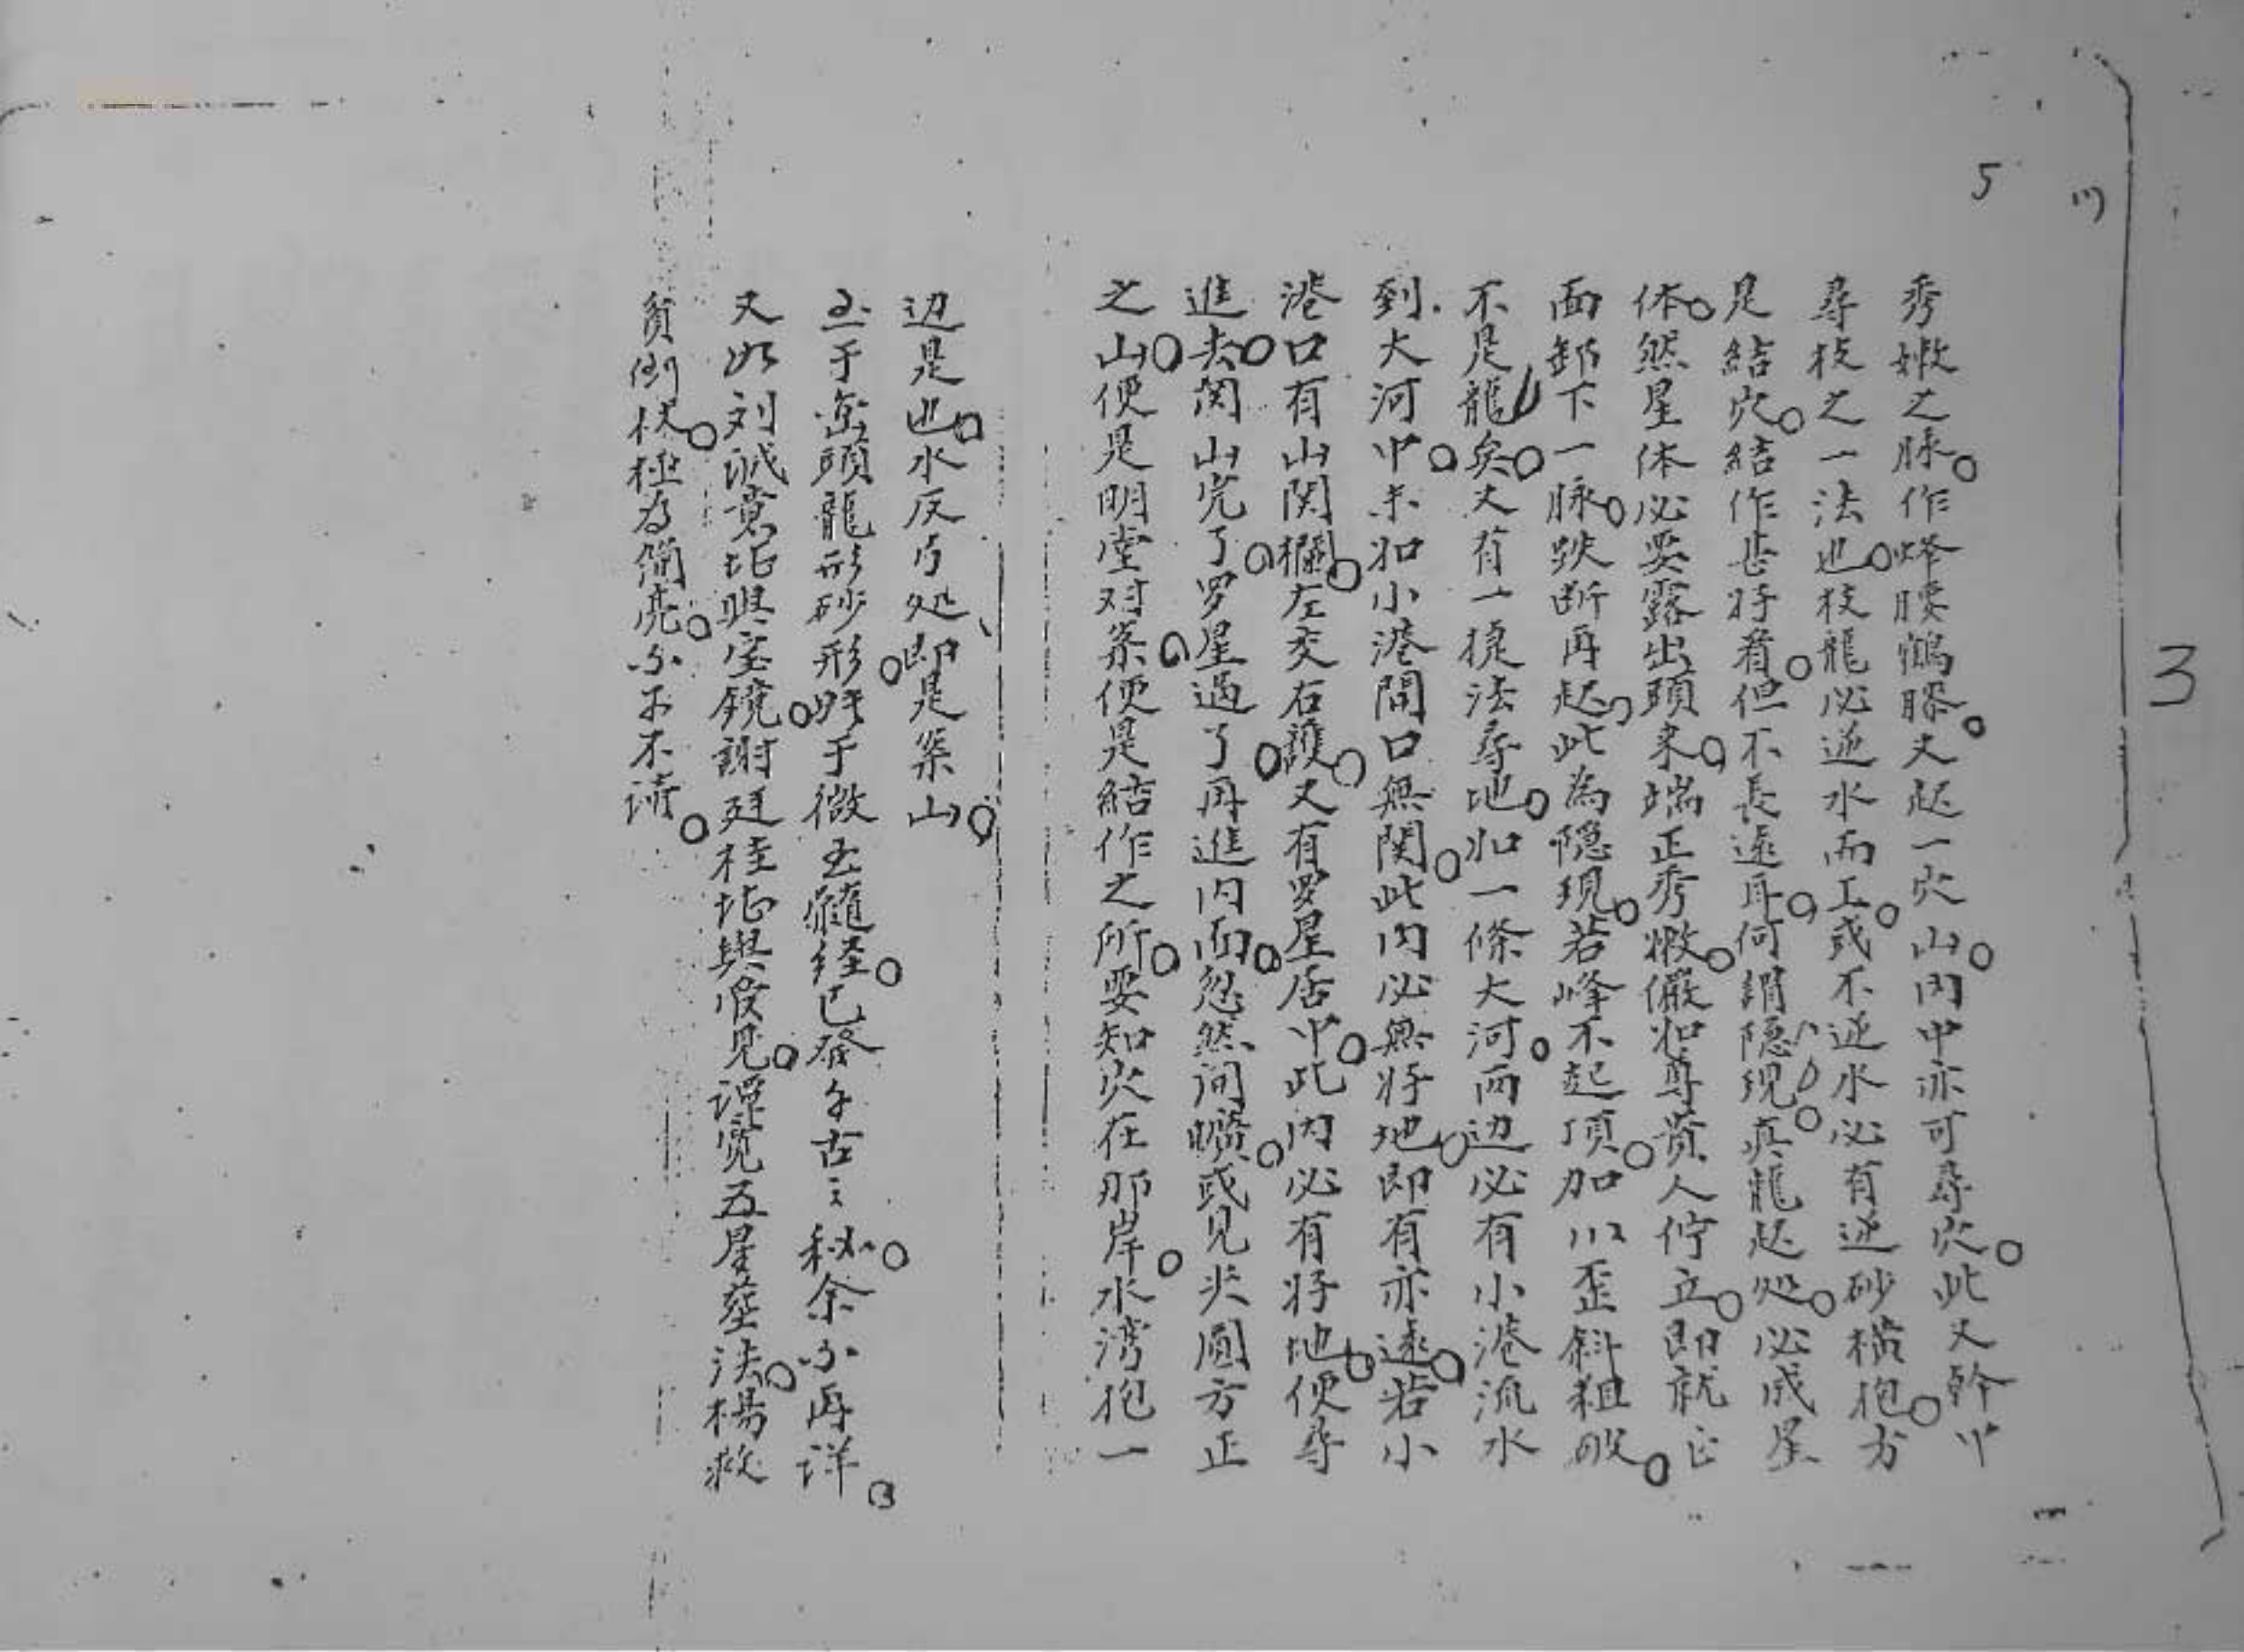 3
5
秀嫩之脉。作蜂腰鶴膝。又起一穴山。內中亦可尋穴。此又幹中
尋枝之一法也。枝龍必逆水而上。或不逆水必有逆砂橫抱。方
是結穴。結作甚好看。但不長遠耳。何謂隐現。真龍起処。必成星
体。然星体必要露出頭来。端正秀嫩。儼如尊貴人佇立。即就正
面卸下一脉。跌断再起。此為隐現。若峰不起頂。加以歪斜粗破。
不是龍矣。又有一捷法尋地。如一條大河。両边必有小港流水
到大河中。未如小港間口無関。此內必無好地。即有亦遠。若小
港口有山関欄。左交右護。又有罗星居中。此內必有好地。便尋
進去。関山完了。罗星過了。再進內面。忽然间曠。或見尖圓方正
之山。便是明堂对案。便是結作之所。要知穴在那岸。水湾抱一
边是也。水反弓処即是案山。
至于巒頭龍形砂形。時于微玉髓経。已發千古之秘。余不再详。
又如刘诚意地與宝鏡。謝廷柱地與㕛見。谭宽五星塟法。楊救
貧倒杖。極為简亮。亦不不清。